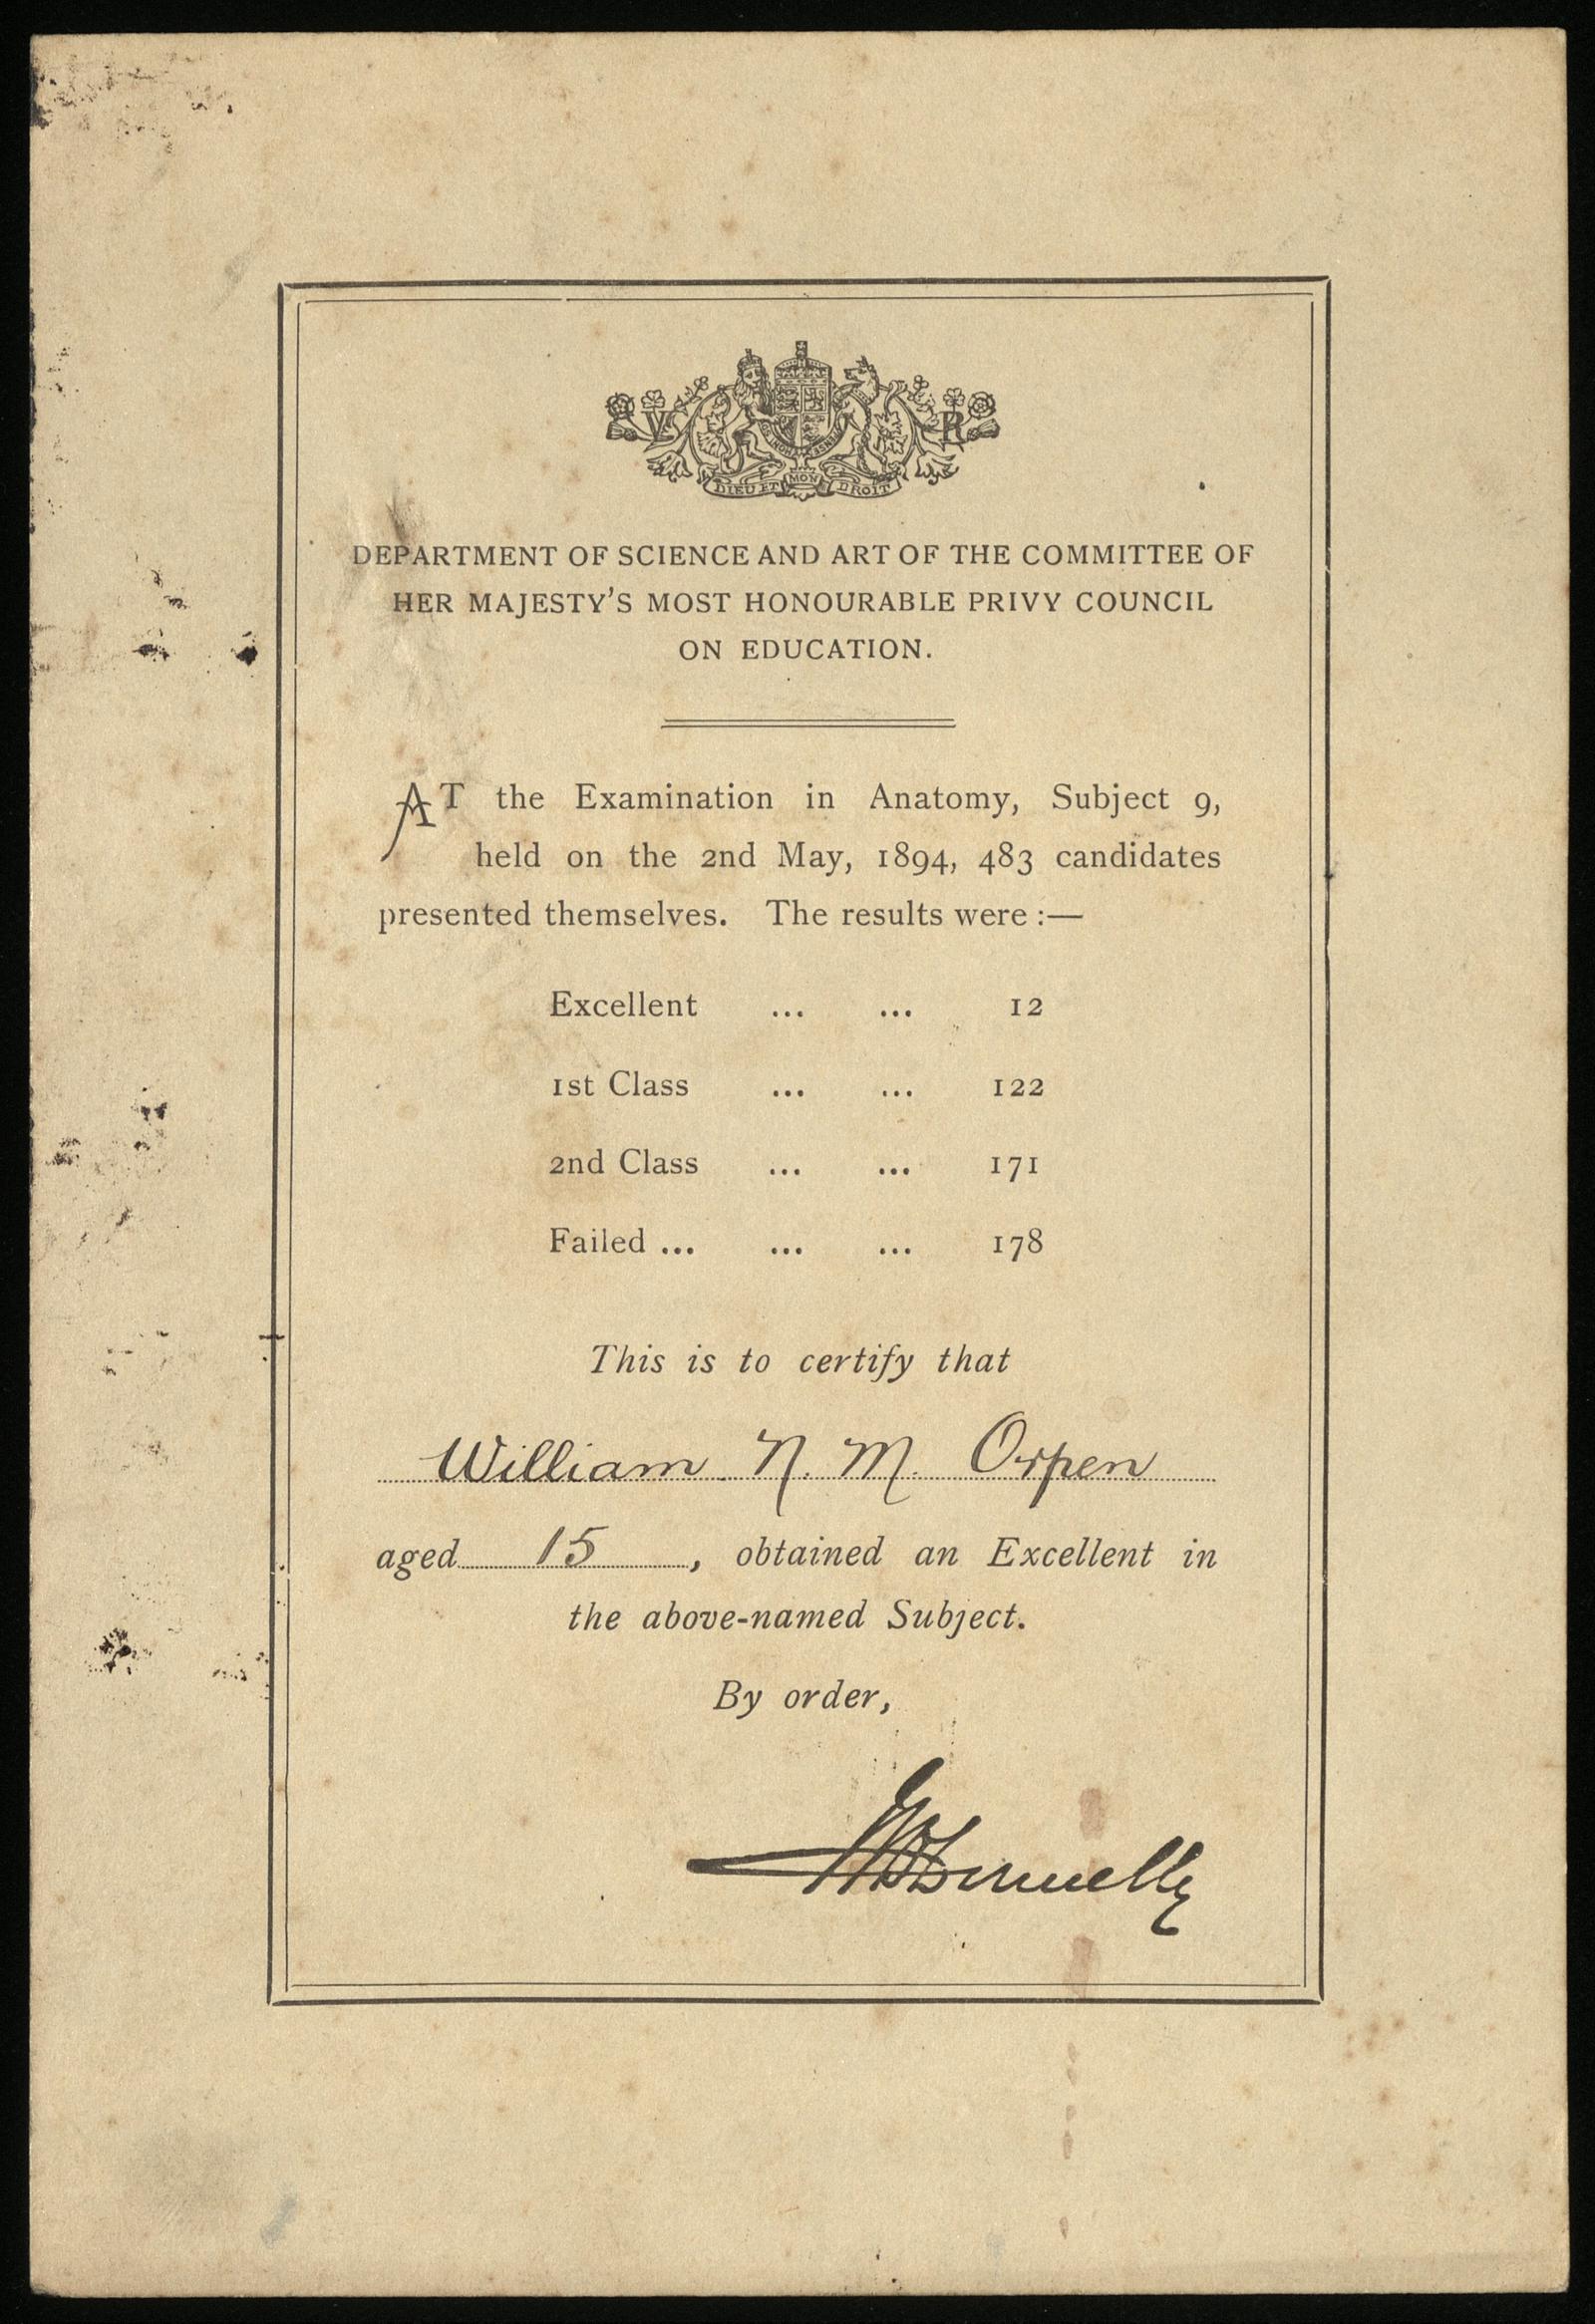 V R
DIEU ET MON DROIT
DEPARTMENT OF SCIENCE AND ART OF THE COMMITTEE OF
HER MAJESTY'S MOST HONOURABLE PRIVY COUNCIL
ON EDUCATION.
AT the Examination in Anatomy, Subject 9,
held on the 2nd May, 1894, 483 candidates
presented themselves. The results were :—
Excellent ... ... 12
1st Class ... ... 122
2nd Class ... ... 171
Failed ... ... ... 178
This is to certify that
William N. M. Orpen
aged 15, obtained an Excellent in
the above-named Subject.
By order,
Donnelly